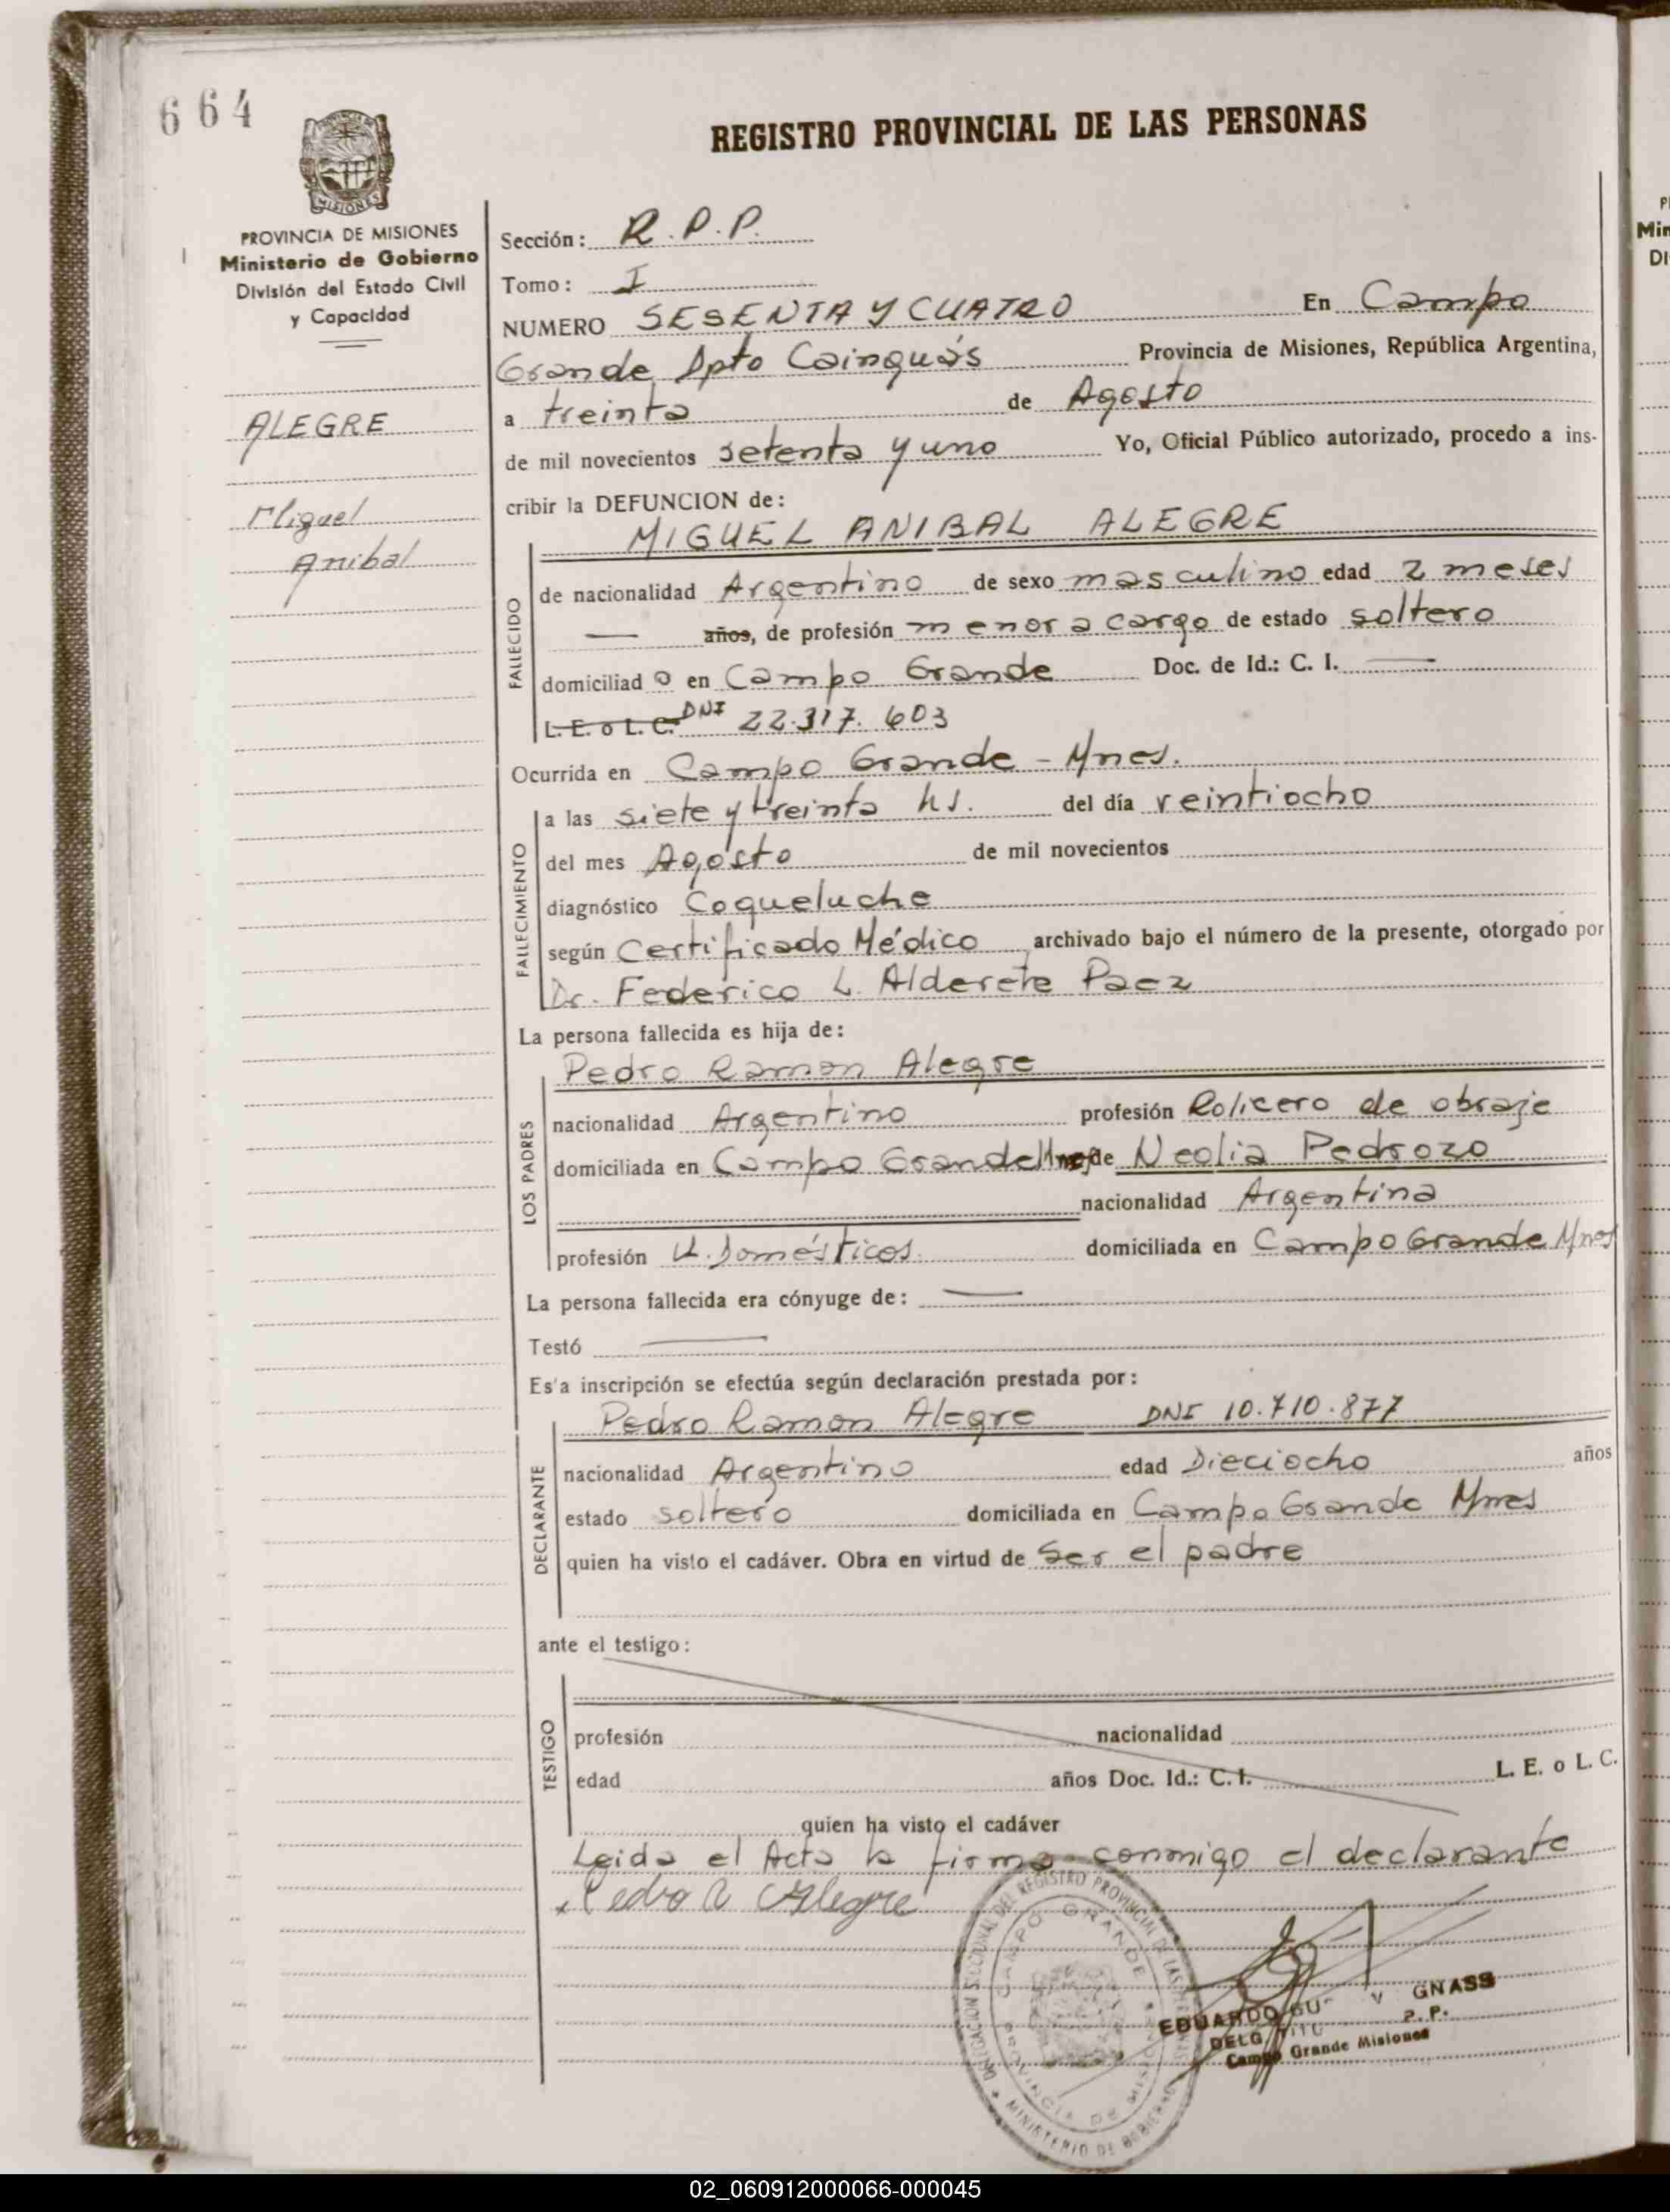 664
REGISTRO PROVINCIAL DE LAS PERSONAS
PROVINCIA DE MISIONES
Ministerio de Gobierno
División del Estado Civil
y Capacidad
ALEGRE
Miguel
Anibal
Sección: R.P.P.
Tomo: I
NUMERO SESENTA Y CUATRO En Campo
Grande Dpto Cainguás Provincia de Misiones, República Argentina,
a treinta de Agosto
de mil novecientos setenta y uno Yo, Oficial Público autorizado, procedo a ins-
cribir la DEFUNCION de:
MIGUEL ANIBAL ALEGRE
FALLECIDO
de nacionalidad Argentino de sexo masculino edad 2 meses
— años, de profesión menor a cargo de estado soltero
domiciliad o en Campo Grande Doc. de Id.: C. I. —
L. E. o L. C. DNI 22.317.603
Ocurrida en Campo Grande - Mnes.
FALLECIMIENTO
a las siete y treinta hs. del día veintiocho
del mes Agosto de mil novecientos
diagnóstico Coqueluche
según Certificado Médico archivado bajo el número de la presente, otorgado por
Dr. Federico L. Alderete Paez
La persona fallecida es hija de:
LOS PADRES
Pedro Ramon Alegre
nacionalidad Argentino profesión Rolicero de obraje
domiciliada en Campo Grande Mnes y de Neolia Pedrozo
nacionalidad Argentina
profesión Q. Domésticos domiciliada en Campo Grande Mnes
La persona fallecida era cónyuge de: —
Testó —
Es'a inscripción se efectúa según declaración prestada por:
DECLARANTE
Pedro Ramon Alegre DNI 10.710.877
nacionalidad Argentino edad Dieciocho años
estado soltero domiciliada en Campo Grande Mnes
quien ha visto el cadáver. Obra en virtud de Ser el padre
ante el testigo:
TESTIGO
profesión nacionalidad
edad años Doc. Id.: C. I. L. E. o L. C.
quien ha visto el cadáver
Leida el Acta la firma conmigo el declarante
Pedro R Alegre
DELEGACION SECCIONAL DEL REGISTRO PROVINCIAL DE LAS PERSONAS
CAMPO GRANDE
PROVINCIA DE MISIONES
MINISTERIO DE GOBIERNO
EDUARDO GNASS
Campo Grande Misiones
02_060912000066-000045